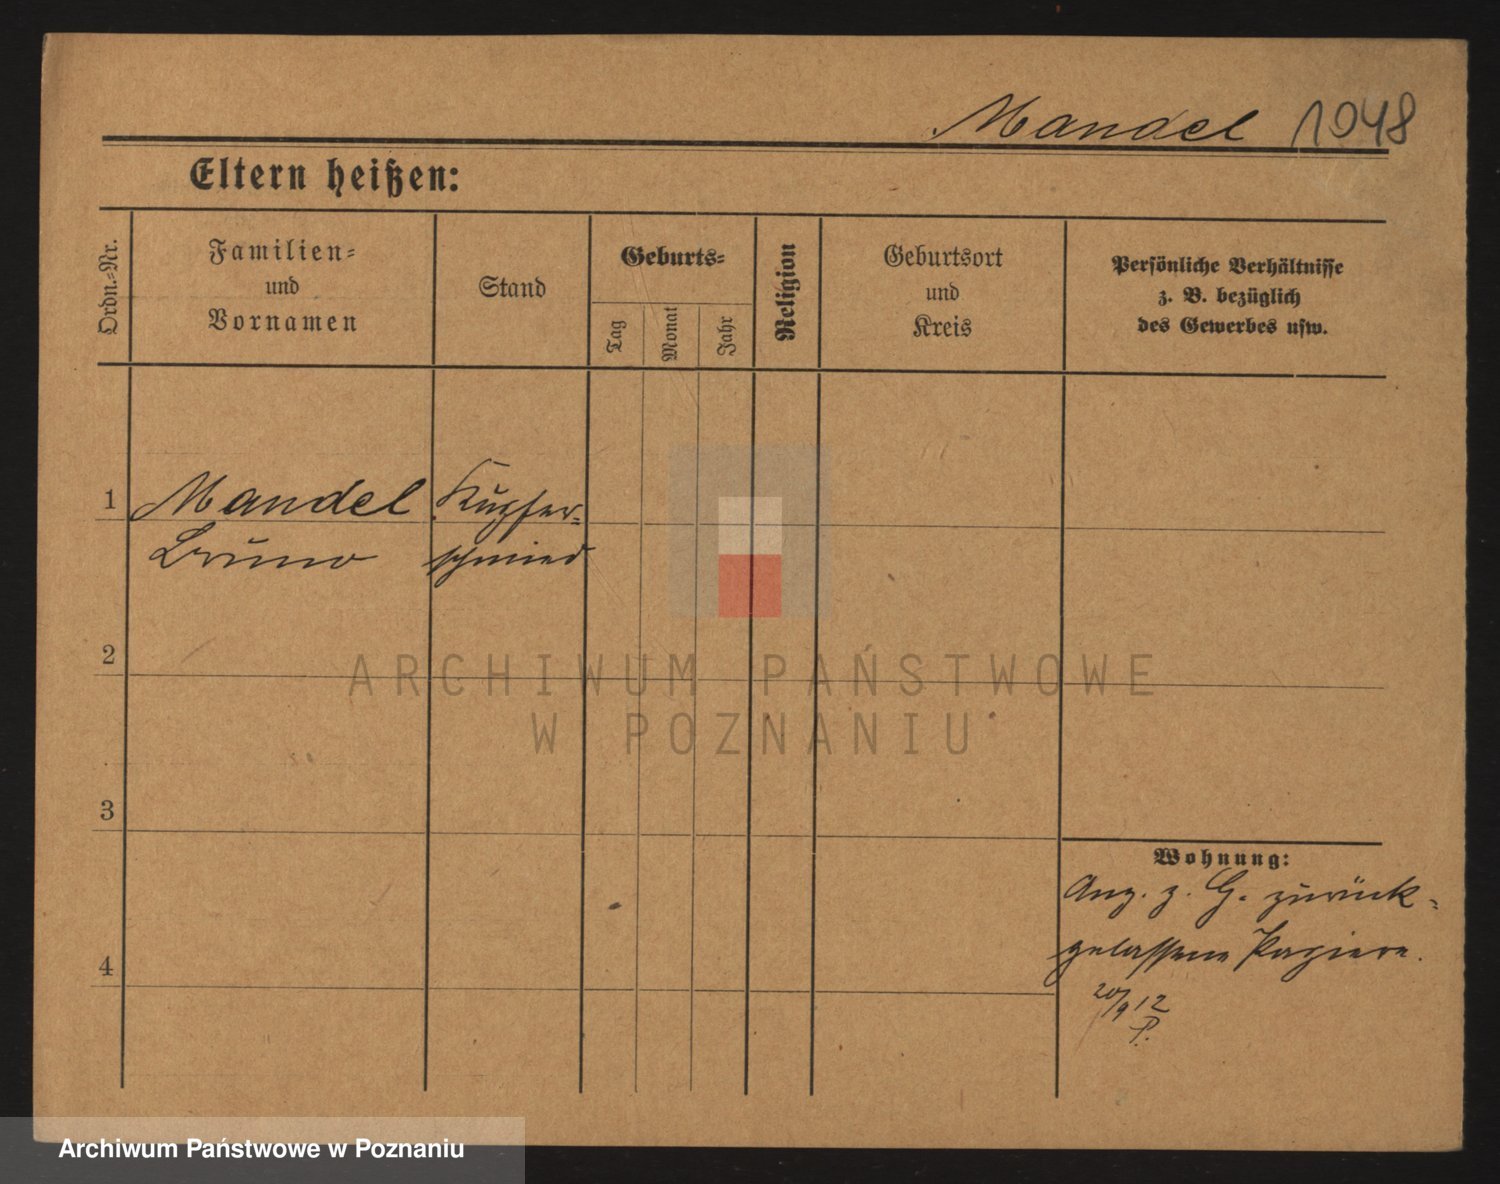 Mandel 1048
Eltern heißen:
Ordn.-Nr.
Familien-
und
Vornamen
Stand
Geburts-
Tag
Monat
Jahr
Religion
Geburtsort
und
Kreis
Persönliche Verhältnisse
z. B. bezüglich
des Gewerbes usw.
1 Mandel Kupfer-
Bruno schmied
2
3
4
Wohnung:
Ang. z. G. zurück-
gelassene Papiere.
20/9 12
P.
ARCHIWUM PAŃSTWOWE
W POZNANIU
Archiwum Państwowe w Poznaniu